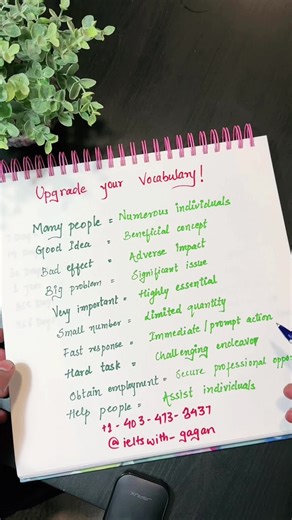 Upgrade your Vocabulary!
Many people = Numerous individuals
Good Idea = Beneficial concept
Bad effect = Adverse Impact
Big problem = Significant issue
Very important = Highly essential
Small number = limited quantity
Fast response = Immediate/prompt action
Hard task = Challenging endeavor
Obtain employment = Secure professional oppo
Help people = Assist individuals
+1-403-473-2437
@ieltswith_gagan